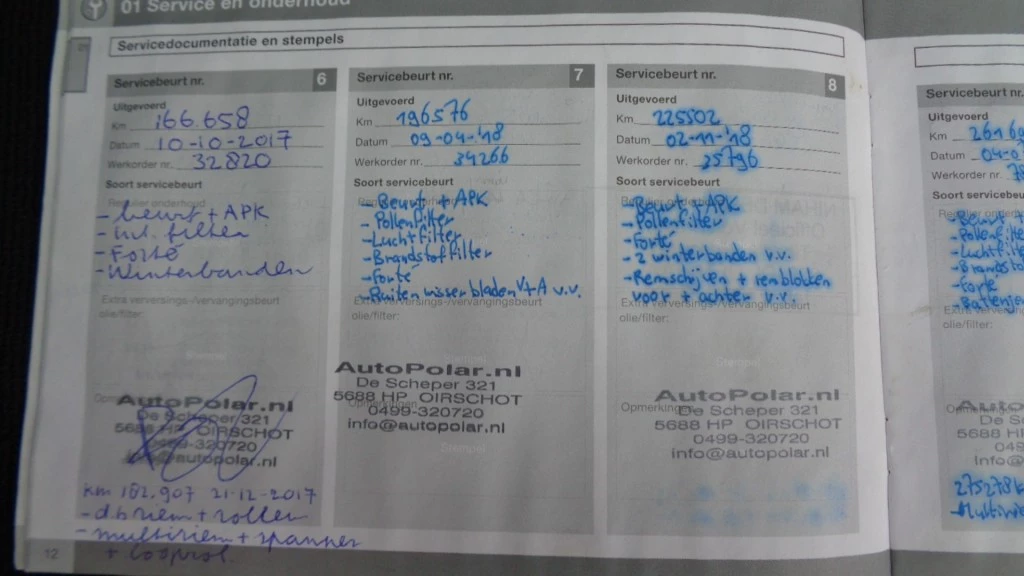 01 Service en onderhoud
Servicedocumentatie en stempels
Servicebeurt nr. 6
Uitgevoerd
Km 166.658
Datum 10-10-2017
Werkorder nr. 32820
Soort servicebeurt
Regulier onderhoud
- beurt + APK
- int. filter
- Forté
- Winterbanden
Extra verversings-/vervangingsbeurt
olie/filter:
Stempel
AutoPolar.nl
De Scheper 321
5688 HP OIRSCHOT
0499-320720
info@autopolar.nl
km 182.907 21-12-2017
- d.b riem + rollen
- multiriem + spanner
+ looprol.
12
Servicebeurt nr. 7
Uitgevoerd
Km 196576
Datum 09-04-'18
Werkorder nr. 34266
Soort servicebeurt
- Beurt + APK
- Pollenfilter
- Luchtfilter
- Brandstoffilter
- Forté
- Ruitenwisserbladen V+A v.v.
Extra verversings-/vervangingsbeurt
olie/filter:
Stempel
AutoPolar.nl
De Scheper 321
5688 HP OIRSCHOT
0499-320720
info@autopolar.nl
Servicebeurt nr. 8
Uitgevoerd
Km 225502
Datum 02-11-'18
Werkorder nr. 35796
Soort servicebeurt
- Beurt + APK
- Pollenfilter
- Forté
- 2 winterbanden v.v.
- Remschijven + remblokken
voor + achter v.v.
Extra verversings-/vervangingsbeurt
olie/filter:
Stempel
Opmerkingen
AutoPolar.nl
De Scheper 321
5688 HP OIRSCHOT
0499-320720
info@autopolar.nl
Servicebeurt nr.
Uitgevoerd
Km
Datum
Werkorder nr.
Soort servicebeurt
- Pollenfilter
- Luchtfilter
- Forté
olie/filter: